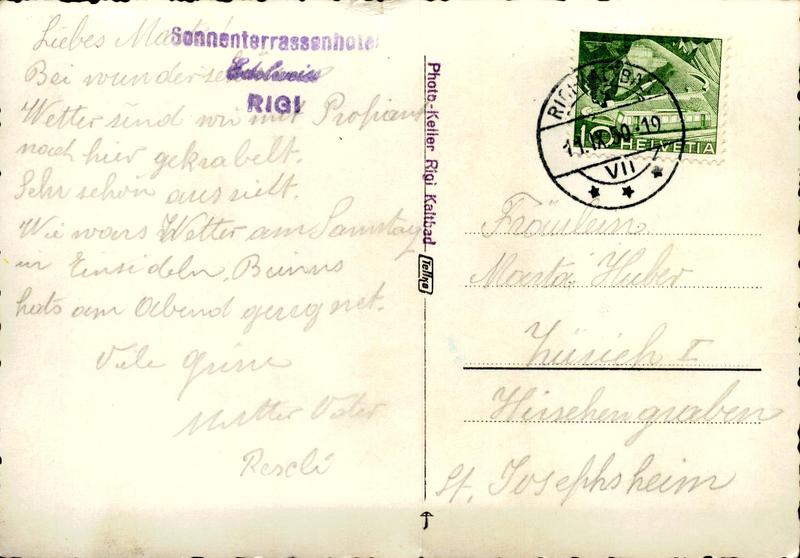 Liebes
Sonnenterrassenhotel
Edelweiss
RIGI
Bei
Wetter sind wir mit Profiant
nach hier gekrabelt.
Sehr schön aussielt.
Wie wars Wetter am Samstag
in Einsideln, Beiuns
hats am Abend geregnet.
Viele Grüsse
Mutter Vater
Photo-Keller Rigi Kaltbad
Tellko
10
HELVETIA
11.IX.50-19
VII
Fräulein
Marta Huber
Zürich I
Hirschengraben
St. Josephsheim